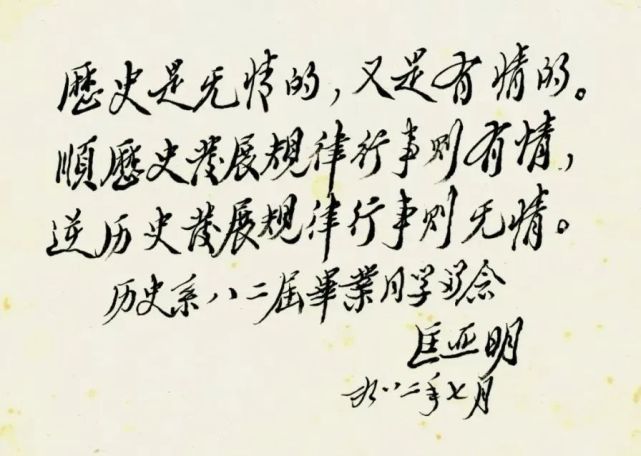 歷史是无情的，又是有情的。
順歷史發展規律行事则有情，
逆历史發展規律行事则无情。
历史系八二届畢業同学留念
匡亚明
一九八二年七月